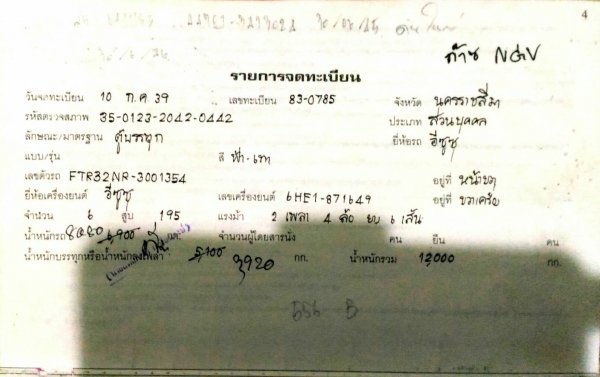 4
ก๊าซ NGV
รายการจดทะเบียน
วันจดทะเบียน 10 ก.ค. 39 เลขทะเบียน 83-0785 จังหวัด นครราชสีมา
รหัสตรวจสภาพ 35-0123-2042-0442 ประเภท ส่วนบุคคล
ลักษณะ/มาตรฐาน ตู้บรรทุก ยี่ห้อรถ อีซูซุ
แบบ/รุ่น สี ฟ้า-เทา
เลขตัวรถ FTR32NR-3001354 อยู่ที่ หน้าขวา
ยี่ห้อเครื่องยนต์ อีซูซุ เลขเครื่องยนต์ 6HE1-871649 อยู่ที่ ขวาเครื่อง
จำนวน 6 สูบ 195 แรงม้า 2 เพลา 4 ล้อ ยาง 6 เส้น
น้ำหนักรถ 6900 จำนวนผู้โดยสารนั่ง คน ยืน คน
น้ำหนักบรรทุกหรือน้ำหนักลงเพลา 5100 3920 กก. น้ำหนักรวม 12000 กก.